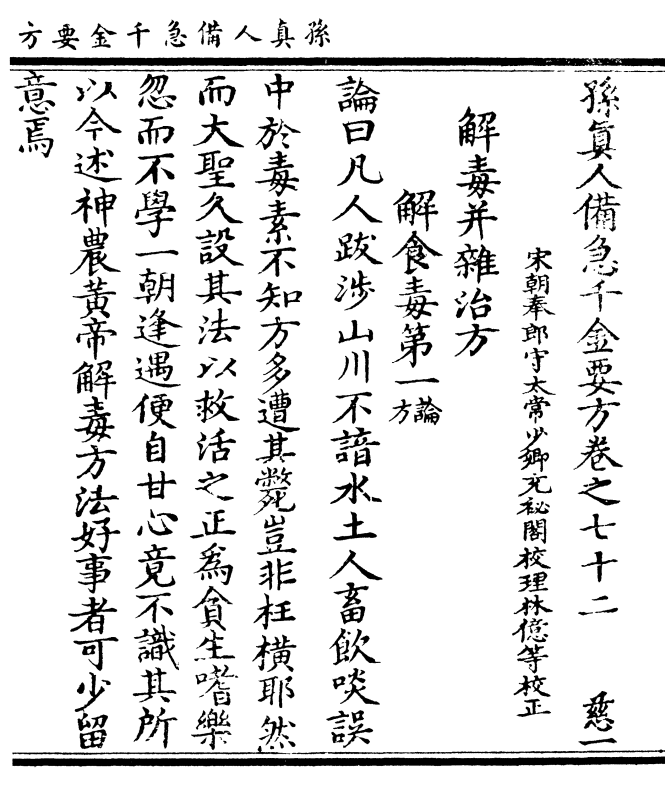 孫真人備急千金要方
孫真人備急千金要方卷之七十二 慈一
宋朝奉郎守太常少卿充祕閣校理林億等校正
解毒并雜治方
解食毒第一 論方
論曰凡人跋涉山川不諳水土人畜飲啖誤
中於毒素不知方多遭其斃豈非枉橫耶然
而大聖久設其法以救活之正為貪生嗜樂
忽而不學一朝逢遇便自甘心竟不識其所
以今述神農黃帝解毒方法好事者可少留
意焉